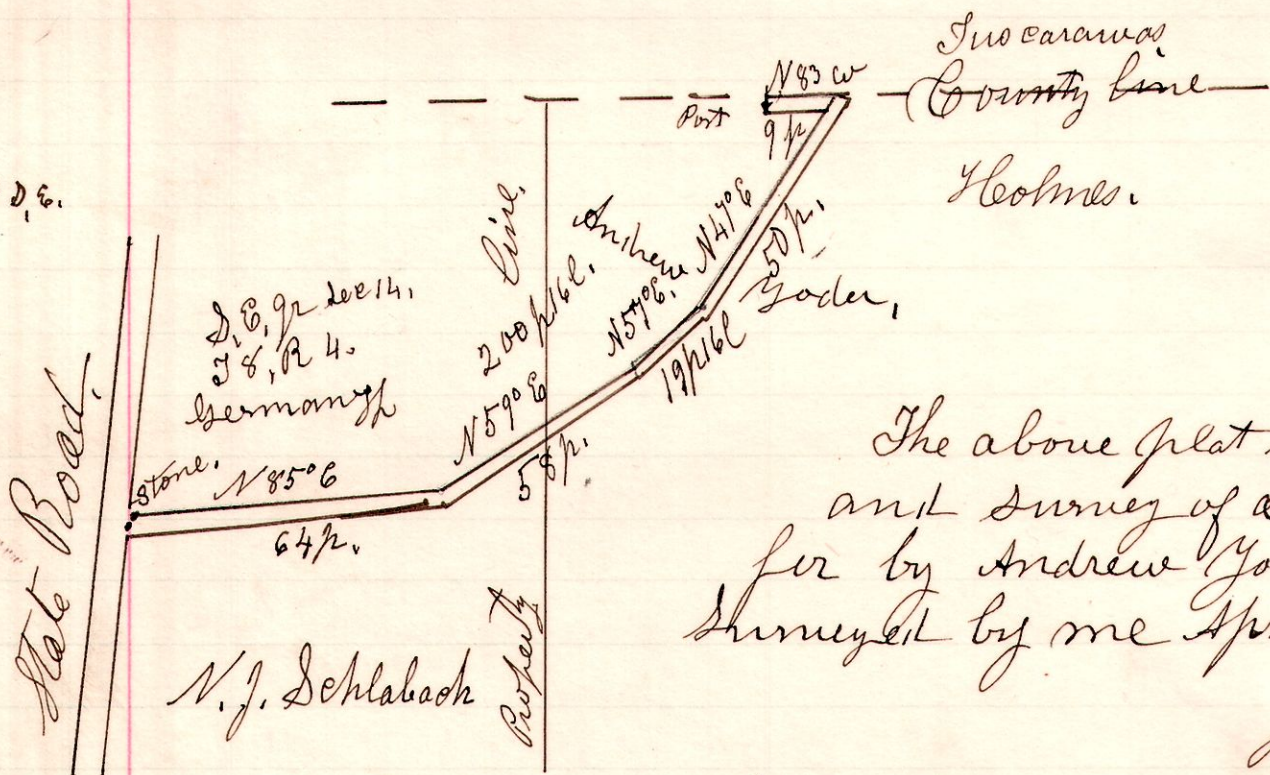 Tuscarawas
County line
Holmes.
N83 W
Post
9 p
D.E.
S.E. qr Sec 14.
T 8, R 4.
German Tp
line.
200 p 16 l.
Andrew
N 47° E
50 p.
Yoder,
N 57° E.
19 p 16 l
N 59° E
58 p.
Stone.
N 85° E
64 p.
State Road.
N. J. Schlabach
Property
The above plat
and survey of a
for by Andrew Yo
Surveyed by me Ap